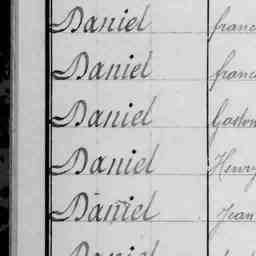 Daniel franc
Daniel franc
Daniel Gaston
Daniel Henry
Daniel Jean
Daniel